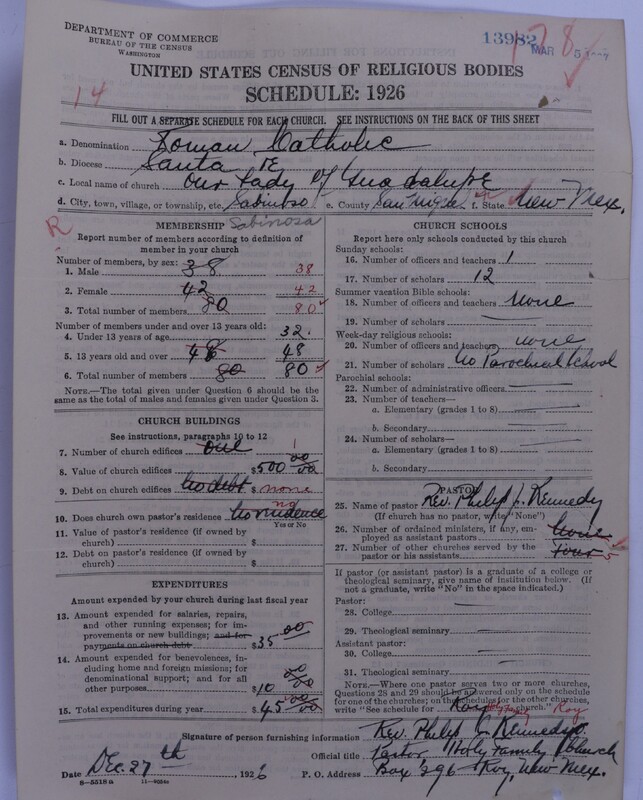 DEPARTMENT OF COMMERCE
BUREAU OF THE CENSUS
WASHINGTON
13982
MAR 8
UNITED STATES CENSUS OF RELIGIOUS BODIES
SCHEDULE: 1926
14
FILL OUT A SEPARATE SCHEDULE FOR EACH CHURCH. SEE INSTRUCTIONS ON THE BACK OF THIS SHEET
a. Denomination Roman Catholic
b. Diocese Santa Fe
c. Local name of church Our Lady of Guadalupe
d. City, town, village, or township, etc. Sabinoso e. County San Miguel f. State New Mex.
R
MEMBERSHIP Sabinosa
Report number of members according to definition of member in your church
Number of members, by sex:
1. Male 38 38
2. Female 42 42
3. Total number of members 80 80
Number of members under and over 13 years old:
4. Under 13 years of age 32
5. 13 years old and over 48 48
6. Total number of members 80 80
NOTE.—The total given under Question 6 should be same as the total of males and females given under Question 3.
CHURCH BUILDINGS
See instructions, paragraphs 10 to 12
7. Number of church edifices one 1
8. Value of church edifices $500 00/00
9. Debt on church edifices No debt $ none
10. Does church own pastor's residence No residence no
Yes or No
11. Value of pastor's residence (if owned by church) $
12. Debt on pastor's residence (if owned by church) $
EXPENDITURES
Amount expended by your church during last fiscal year
13. Amount expended for salaries, repairs, and other running expenses; for improvements or new buildings; and for payments on church debt $35 00
14. Amount expended for benevolences, including home and foreign missions; for denominational support; and for all other purposes $10 00/00
15. Total expenditures during year $45 00/00
CHURCH SCHOOLS
Report here only schools conducted by this church
Sunday schools:
16. Number of officers and teachers 1
17. Number of scholars 12
Summer vacation Bible schools:
18. Number of officers and teachers none
19. Number of scholars
Week-day religious schools:
20. Number of officers and teachers none
21. Number of scholars No Parochial School
Parochial schools:
22. Number of administrative officers
23. Number of teachers—
a. Elementary (grades 1 to 8)
b. Secondary
24. Number of scholars—
a. Elementary (grades 1 to 8)
b. Secondary
PASTOR
25. Name of pastor Rev. Philip J. Kennedy
(If church has no pastor, write "None")
26. Number of ordained ministers, if any, employed as assistant pastors None
27. Number of other churches served by the pastor or his assistants four 5
If pastor (or assistant pastor) is a graduate of a college or theological seminary, give name of institution below. (If not a graduate, write "No" in the space indicated.)
Pastor:
28. College
29. Theological seminary
Assistant pastor:
30. College
31. Theological seminary
NOTE.—Where one pastor serves two or more churches, Questions 28 and 29 should be answered only on the schedule for one of the churches; on the schedules for the other churches, write "See schedule for Roy Holy Family church." Roy
Signature of person furnishing information Rev. Philip J. Kennedy
Official title Pastor Holy Family Church
Date Dec. 27th, 1926 P. O. Address Box 296 Roy, New Mex.
8—5518 a 11—9224